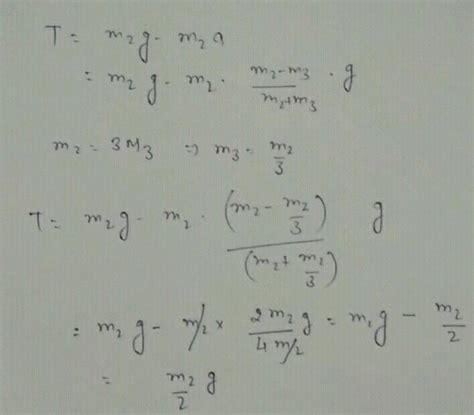 T = m₂g - m₂a
= m₂g - m₂ · (m₂-m₃)/(m₂+m₃) · g
m₂ = 3M₃ ⇒ m₃ = m₂/3
T = m₂g - m₂ · (m₂ - m₂/3)/(m₂ + m₂/3) g
= m₂g - m/₂ × 2m₂/4m/₂ g = m₂g - m₂/2
= m₂/2 g